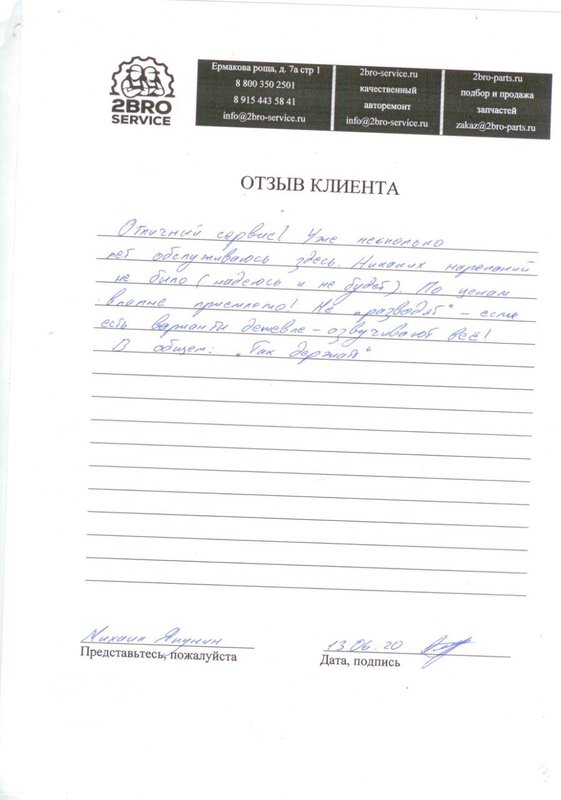 2BRO
SERVICE
Ермакова роща, д. 7а стр 1
8 800 350 2501
8 915 443 58 41
info@2bro-service.ru
2bro-service.ru
качественный
авторемонт
info@2bro-service.ru
2bro-parts.ru
подбор и продажа
запчастей
zakaz@2bro-parts.ru
ОТЗЫВ КЛИЕНТА
Отличный сервис! Уже несколько
лет обслуживаюсь здесь. Никаких нареканий
не было (надеюсь и не будет) По ценам
вполне приемлемо! Не „разводят“ – если
есть варианты дешевле – озвучивают всё!
В общем: „Так держать“
Михаил Якунин
Представьтесь, пожалуйста
13.06.20
Дата, подпись